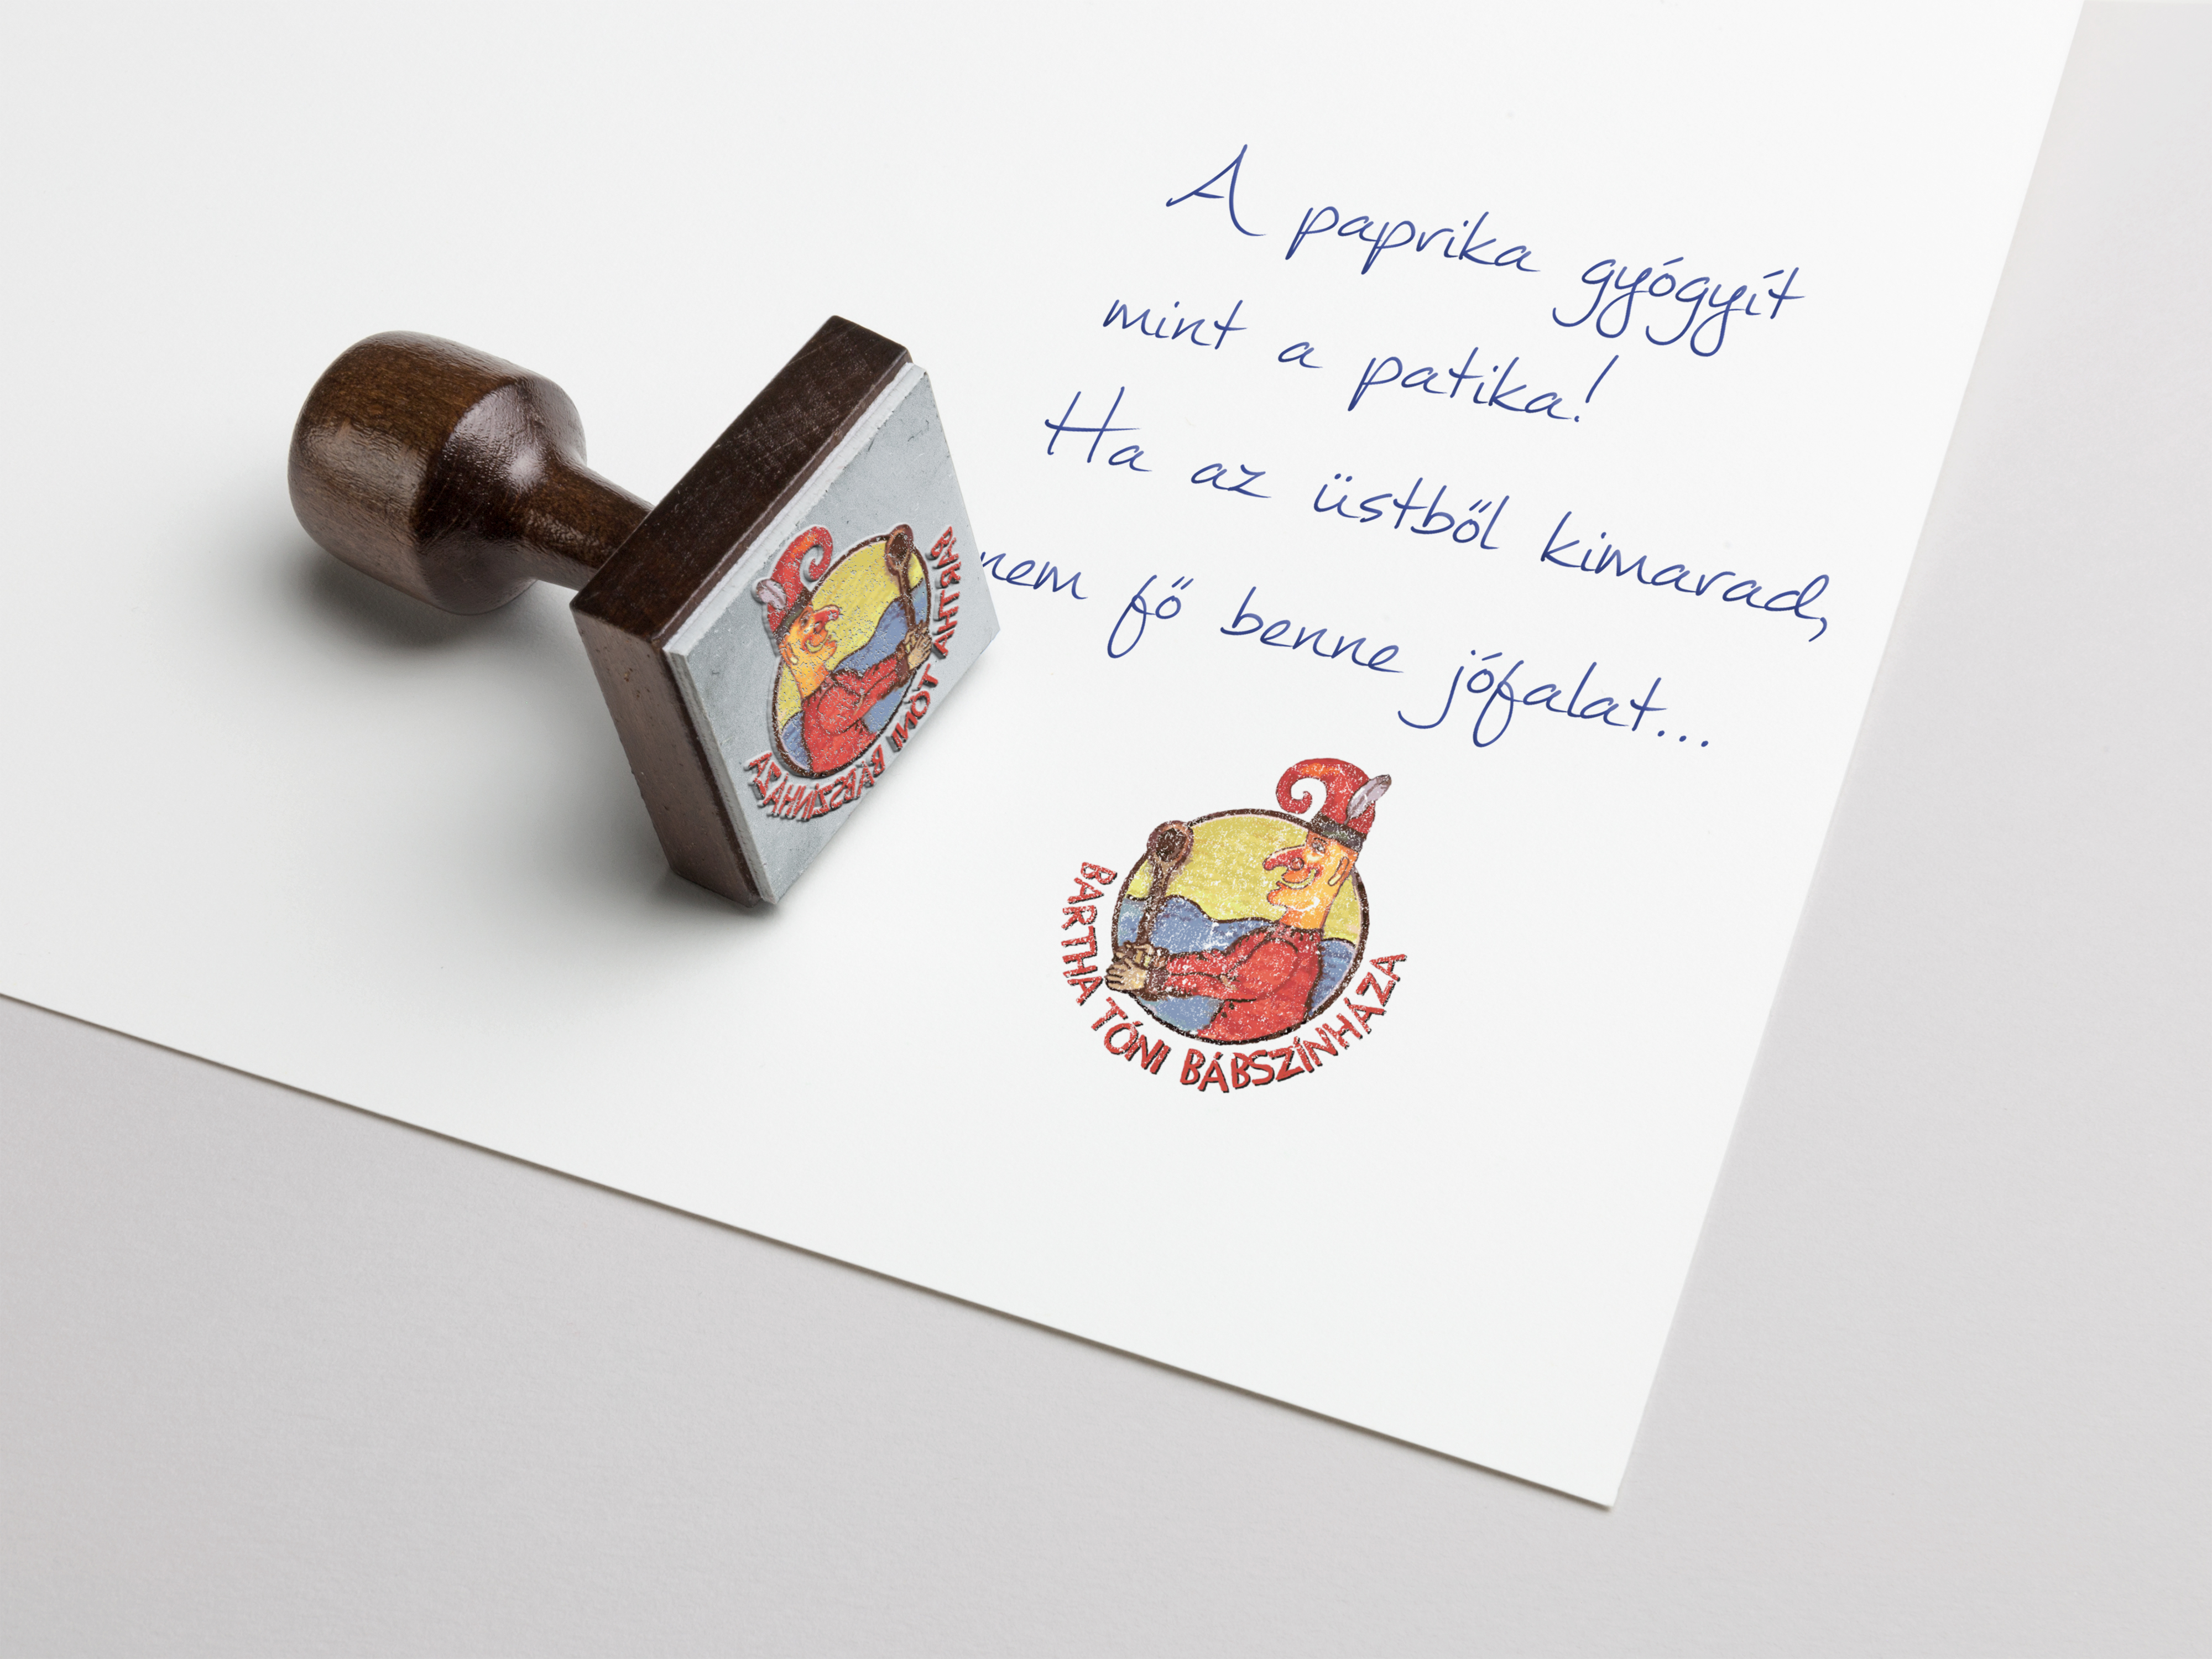 A paprika gyógyít
mint a patika!
Ha az üstből kimarad,
nem fő benne jófalat...
BARTHA TÓNI BÁBSZÍNHÁZA
BARTHA TÓNI BÁBSZÍNHÁZA